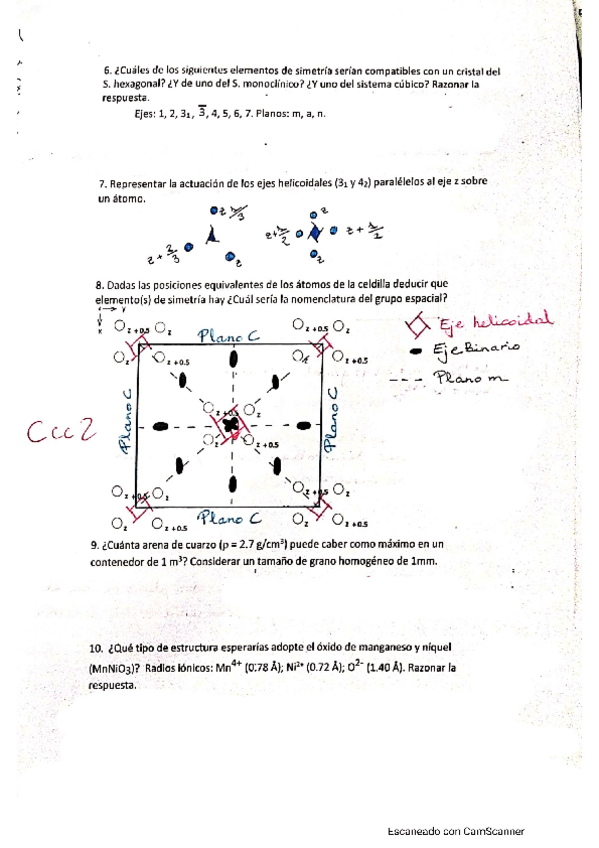 6. ¿Cuáles de los siguientes elementos de simetría serían compatibles con un cristal del
S. hexagonal? ¿Y de uno del S. monoclínico? ¿Y uno del sistema cúbico? Razonar la
respuesta.
Ejes: 1, 2, 3₁, 3̅, 4, 5, 6, 7. Planos: m, a, n.
7. Representar la actuación de los ejes helicoidales (3₁ y 4₂) paralélelos al eje z sobre
un átomo.
z + 2/3
z
z+1/2
z
z + 1/2
z
8. Dadas las posiciones equivalentes de los átomos de la celdilla deducir que
elemento(s) de simetría hay ¿Cuál sería la nomenclatura del grupo espacial?
y
x
z + 0.5 z
Plano C
z + 0.5 z
Eje helicoidal
z
z + 0.5
z
z + 0.5
Eje Binario
Plano m
Plano C
Plano C
Ccc2
z + 0.5 z
z
z + 0.5
z + 0.5 z
z + 0.5 z
z
z + 0.5
Plano C
z
z + 0.5
9. ¿Cuánta arena de cuarzo (p = 2.7 g/cm³) puede caber como máximo en un
contenedor de 1 m³? Considerar un tamaño de grano homogéneo de 1mm.
10. ¿Qué tipo de estructura esperarías adopte el óxido de manganeso y níquel
(MnNiO₃)? Radios Iónicos: Mn⁴⁺ (0.78 Å); Ni²⁺ (0.72 Å); O²⁻ (1.40 Å). Razonar la
respuesta.
Escaneado con CamScanner